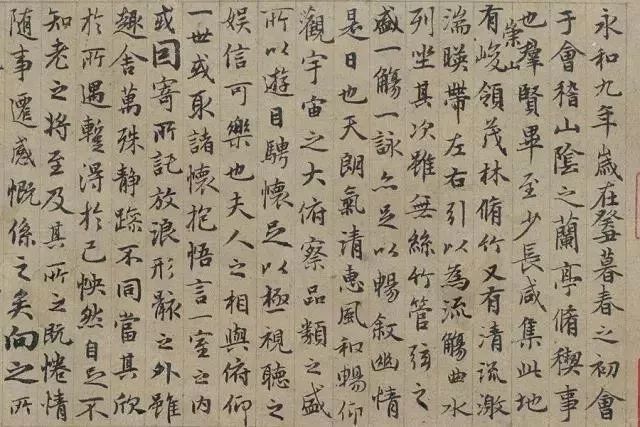 永和九年歲在癸丑暮春之初會
于會稽山陰之蘭亭脩稧事
也羣賢畢至少長咸集此地
有崇山峻領茂林脩竹又有清流激
湍暎帶左右引以為流觴曲水
列坐其次雖無絲竹管弦之
盛一觴一詠亦足以暢敘幽情
是日也天朗氣清惠風和暢仰
觀宇宙之大俯察品類之盛
所以遊目騁懷足以極視聽之
娛信可樂也夫人之相與俯仰
一世或取諸懷抱悟言一室之內
或因寄所託放浪形骸之外雖
趣舍萬殊静躁不同當其欣
於所遇蹔得於己怏然自足不
知老之將至及其所之既惓情
随事遷感慨係之矣向之所